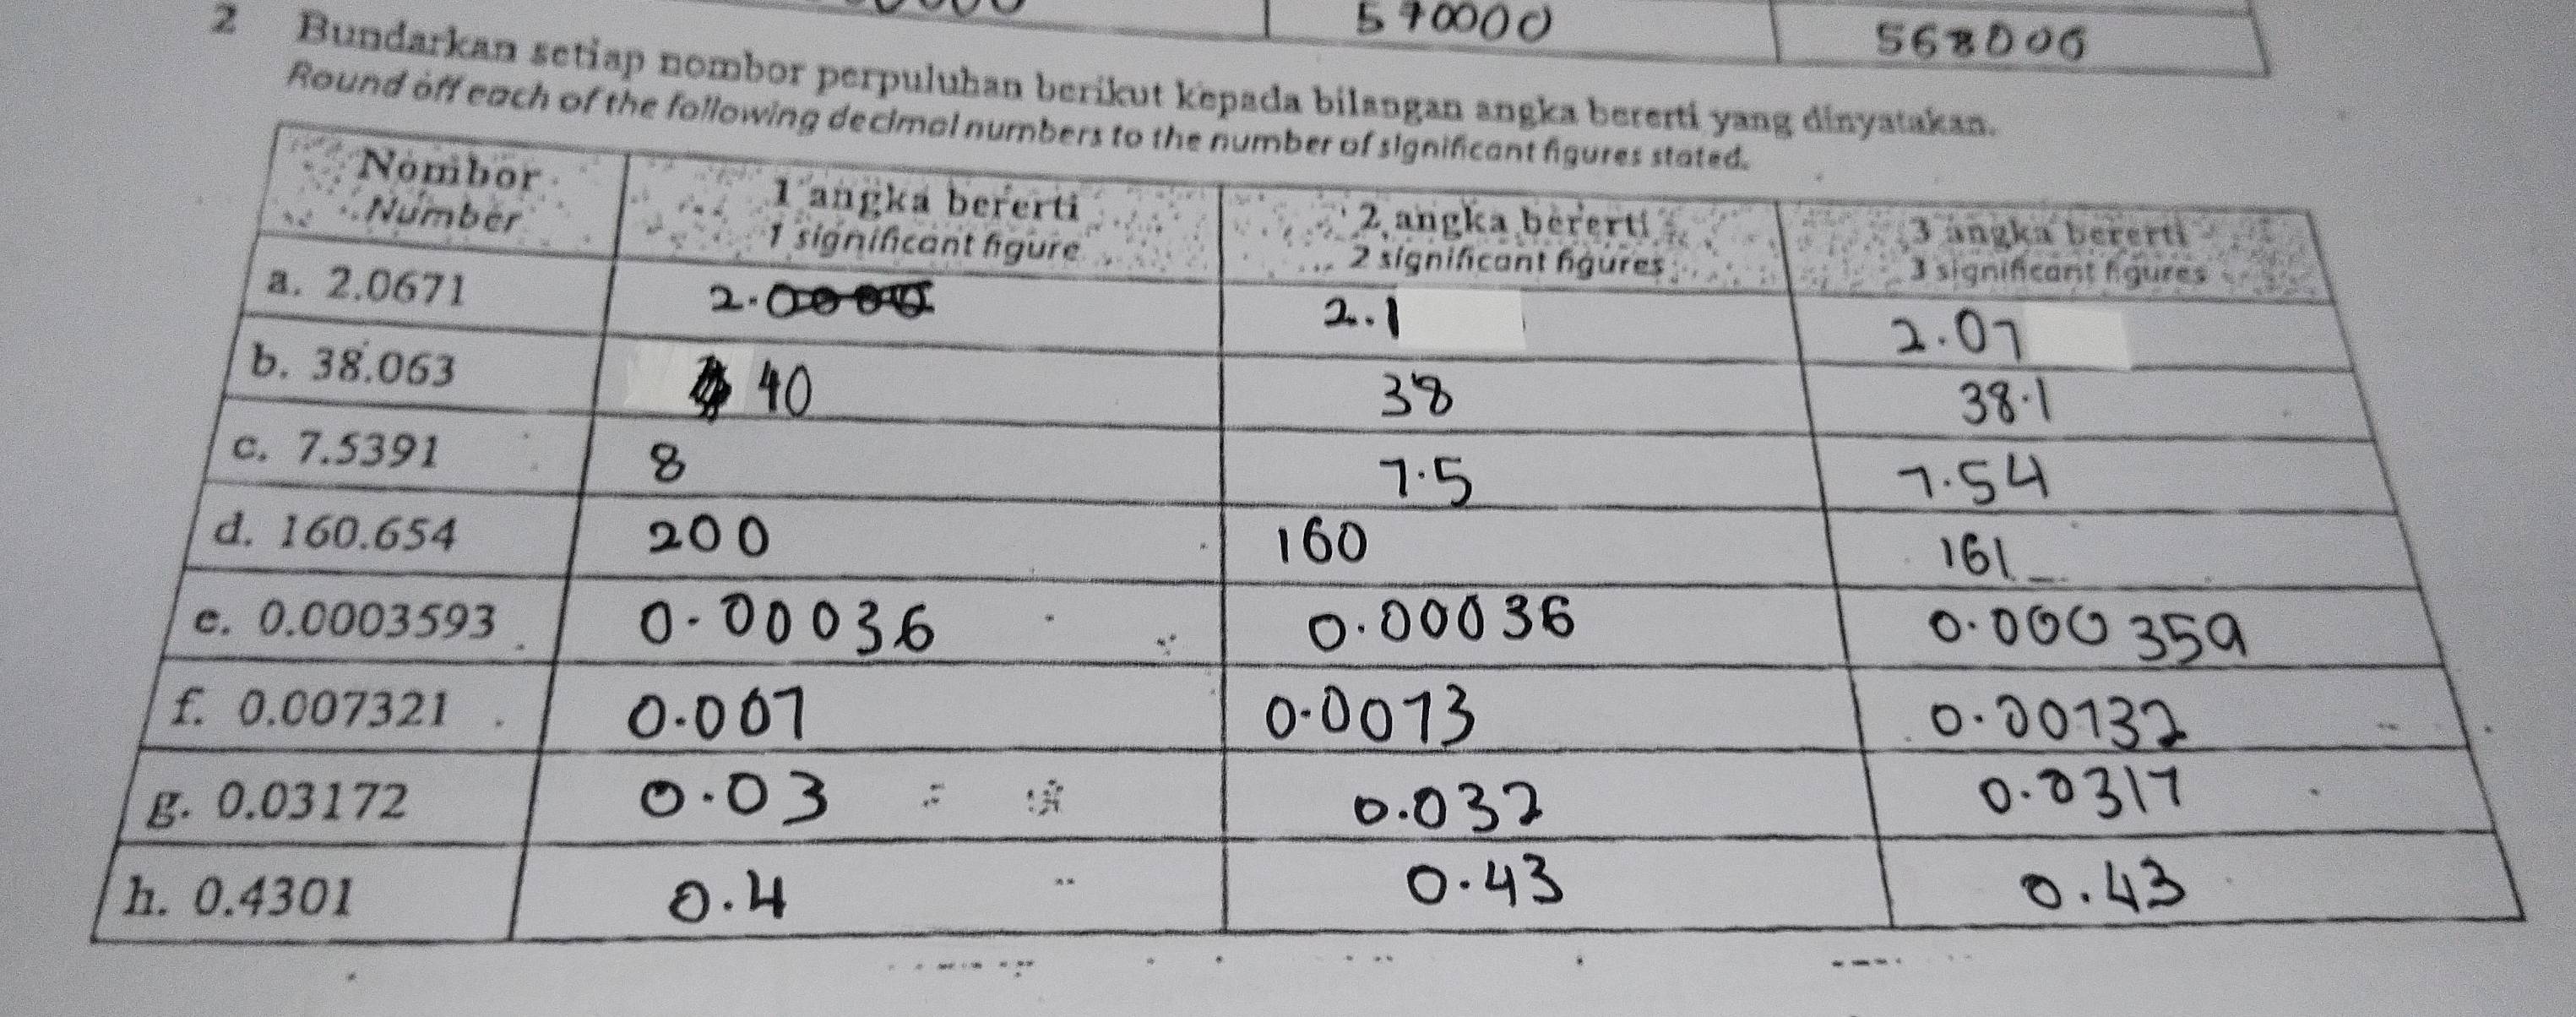 570000 568000
2 Bundarkan setiap nombor perpuluhan berikut kepada bilangan angka bererti yang dinyatakan.
Round off each of the following decimal numbers to the number of significant figures stated.
Nombor 1 angka bererti 2 angka bererti 3 angka bererti
Number 1 significant figure 2 significant figures 3 significant figures
a. 2.0671 2. 2.1 2.07
b. 38.063 40 38 38.1
c. 7.5391 8 7.5 7.54
d. 160.654 200 160 161
e. 0.0003593 0.00036 0.00036 0.000359
f. 0.007321 0.007 0.0073 0.00732
g. 0.03172 0.03 0.032 0.0317
h. 0.4301 0.4 0.43 0.43